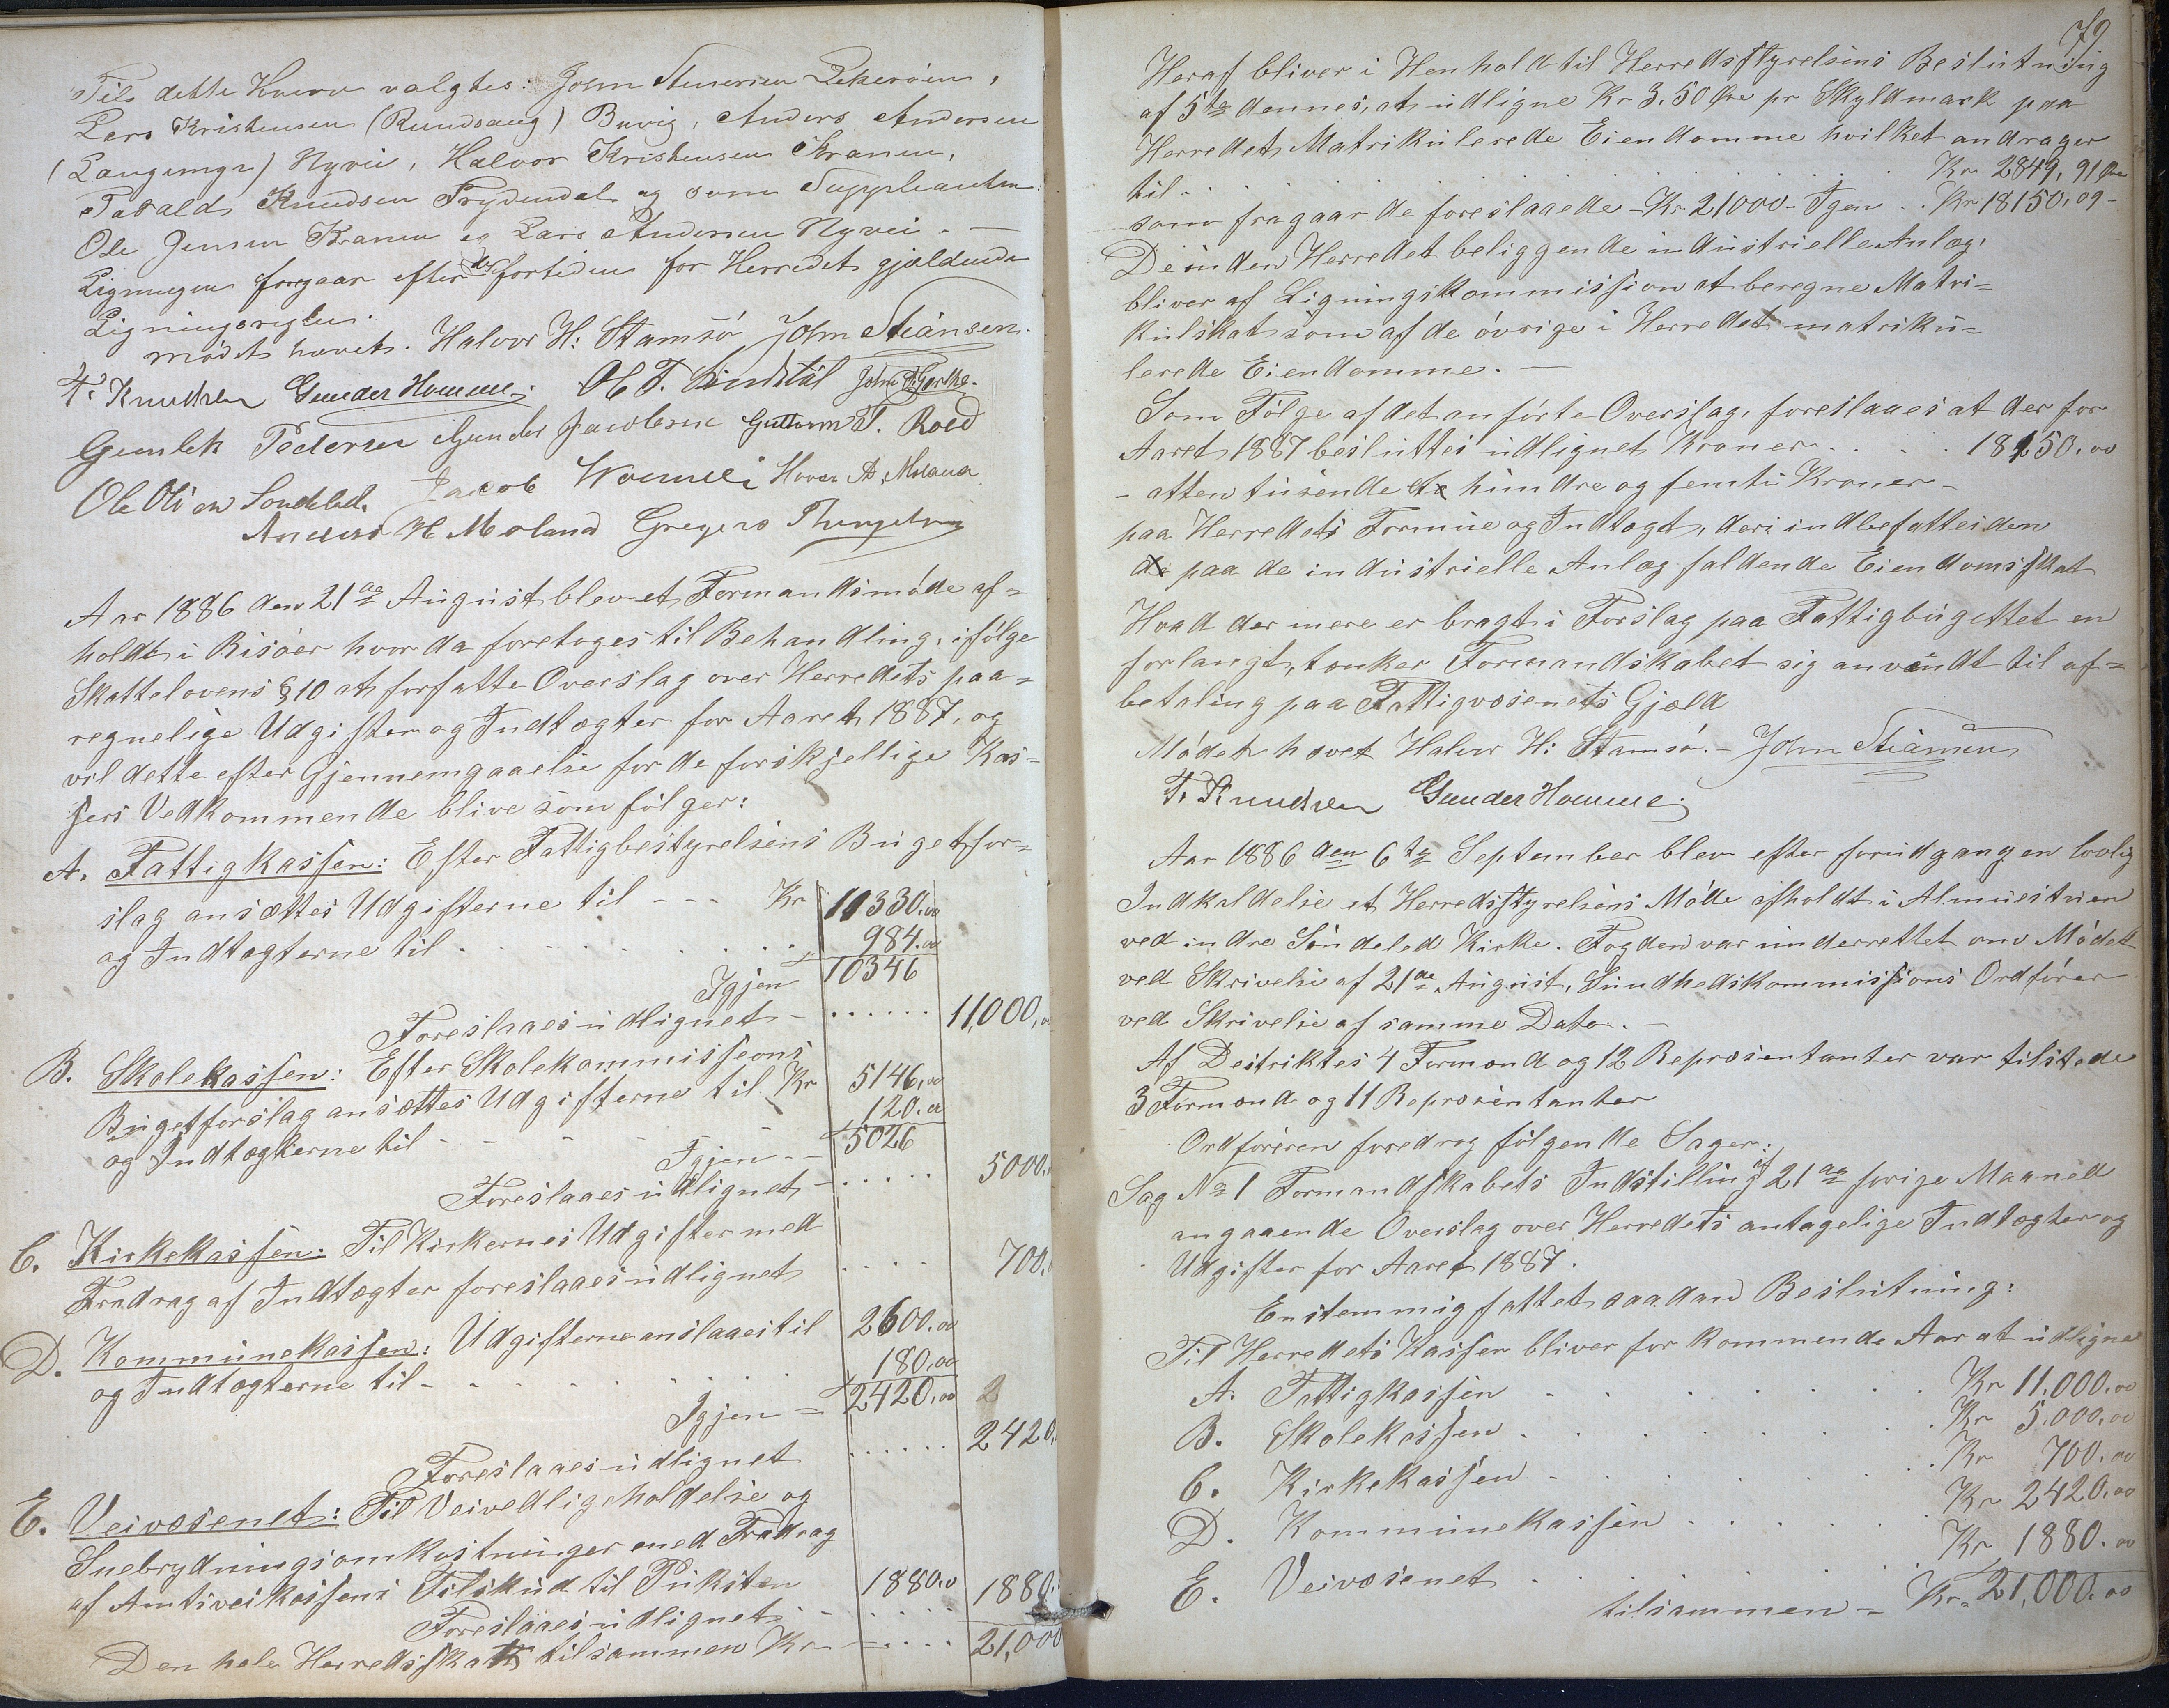 Til dette Hverv valgtes: John Stenersen Lekerøen,
Lars Kristensen (Rundsaug) Buvig, Anders Andersen
Nyvei, Halvor Kristensen Kranen,
Knudsen Frydendal og som Suppleanter:
Ole Jensen Kranen og Lars Andersen Nyvei. —
Ligningen foregaar efter de fortiden for Herredet gjældende
Ligningsregler.
Mødet hævet. Halvor H: Stamsø John Stiansen.
T. Knudsen Gunder Homme. Ole T. Lindstøl John
Gunlek Pedersen Gunder Jacobsen Guttorm T. Roed
Ole Olsen Søndeled. Jacob Hover A Moland
Anders H Moland Gregers
Aar 1886 den 21de August blev et Formandsmøde af=
holdt i Risøer hvor da foretoges til Behandling, ifølge
Skattelovens § 10 at forfatte Overslag over Herredets paa=
regnelige Udgifter og Indtægter for Aaret 1887, og
vil dette efter Gjennemgaaelse for de forskjellige Kas=
sers Vedkommende blive som følger:
A. Fattigkassen: Efter Fattigbestyrelsens Bugetfor=
slag ansættes Udgifterne til - - - Kr 11330.00
og Indtægterne til . . . . . . 984.00
Igjen 10346
Foreslaaes udlignet - . . . . . . 11,000,00
B. Skolekassen: Efter Skolekommissions
Bugetforslag ansættes Udgifterne til Kr 5146,00
og Indtægterne til - - - - - - 120.00
Igjen - - 5026
Foreslaaes udlignet - . . . . . 5000.
C. Kirkekassen: Til Kirkernes Udgifter med
Fradrag af Indtægter foreslaaes udlignet . . . . 700.
D. Kommunekassen: Udgifterne anslaaes til 2600.00
og Indtægterne til - . . . . . . 180,00
Igjen = 2420,00 2
Foreslaaes udlignet . . . . . . 2420,
E. Veivæsenet: Til Veivedligeholdelse og
Snebrydningsomkostninger med Fradrag
af Amtsveikassens Tilskud til Puksten 1880.0 1880.
Foreslaaes udlignet . . - . . . .
Den hele Herredsskatt tilsammen Kr - . . . . 21,000
79
Heraf bliver i Henhold til Herredsstyrelsens Beslutning
af 5te dennes, at udligne Kr 3.50 Øre pr Skyldmark paa
Herredets Matrikulerede Eiendomme hvilket andrager
til . . . . . . . . . . Kr 2849,91 Øre
som fragaar de foreslaaede - Kr 21000 - Igen . . Kr 18150,09 -
De inden Herredet beliggende industrielle Anlæg,
bliver af Ligningskommission at beregne Matri=
kulskat som af de øvrige i Herredet matriku=
lerede Eiendomme. —
Som Følge af det anførte Overslag, foreslaaes at der for
Aaret 1887 besluttes udlignet Kroner . . . . 18150.00
- atten tusende hundre og femti Kroner -
paa Herredets Formue og Indtægt, deri indbefattes den
paa de industrielle Anlæg faldende Eiendomsskat
Hvad der mere er bragt i Forslag paa Fattigbugettet en
forlangt, tænker Formandskabet sig anvendt til af=
betaling paa Fattigvæsenets Gjæld
Mødet hævet Halvor H: Stamsø. - John Stiansen
T. Knudsen Gunder Homme.
Aar 1886 den 6te September blev efter forudgangen lovlig
Indkaldelse et Herredsstyrelsens Møde afholdt i Almuestuen
ved indre Søndeled Kirke. Fogden var underrettet om Mødet
ved Skrivelse af 21de August, Sundhedskommissions Ordfører
ved Skrivelse af samme Dato. —
Af Destriktes 4 Formænd og 12 Repræsentanter var tilstede
3 Formænd og 11 Repræsentanter
Ordføreren foredrog følgende Sager:
Sag No 1 Formandskabets Indstilling af 21de forige Maaned
angaaende Overslag over Herredets antagelige Indtægter og
Udgifter for Aaret 1887.
Enstemmig fattet saadan Beslutning:
Til Herredets Kasser bliver for kommende Aar at udligne
A. Fattigkassen . . . . . . . Kr 11,000.00
B. Skolekassen . . . . . . . Kr 5,000,00
C. Kirkekassen . . . . . . . Kr 700.00
D. Kommunekassen . . . . . . Kr 2420.00
E. Veivæsenet . . . . . . . Kr 1880.00
tilsammen = Kr. 21,000.00